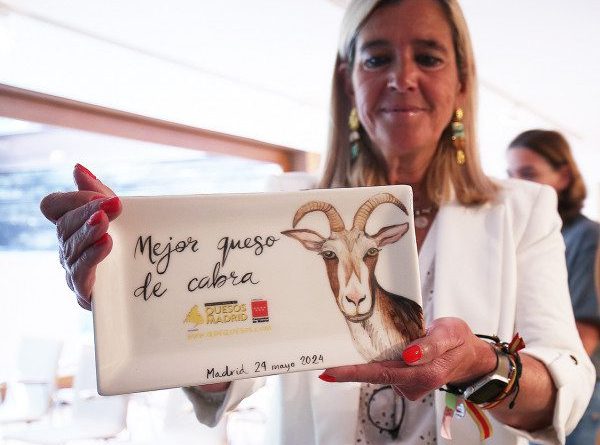 Mejor queso
de cabra
QUESOS
MADRID
Madrid 29 mayo 2024